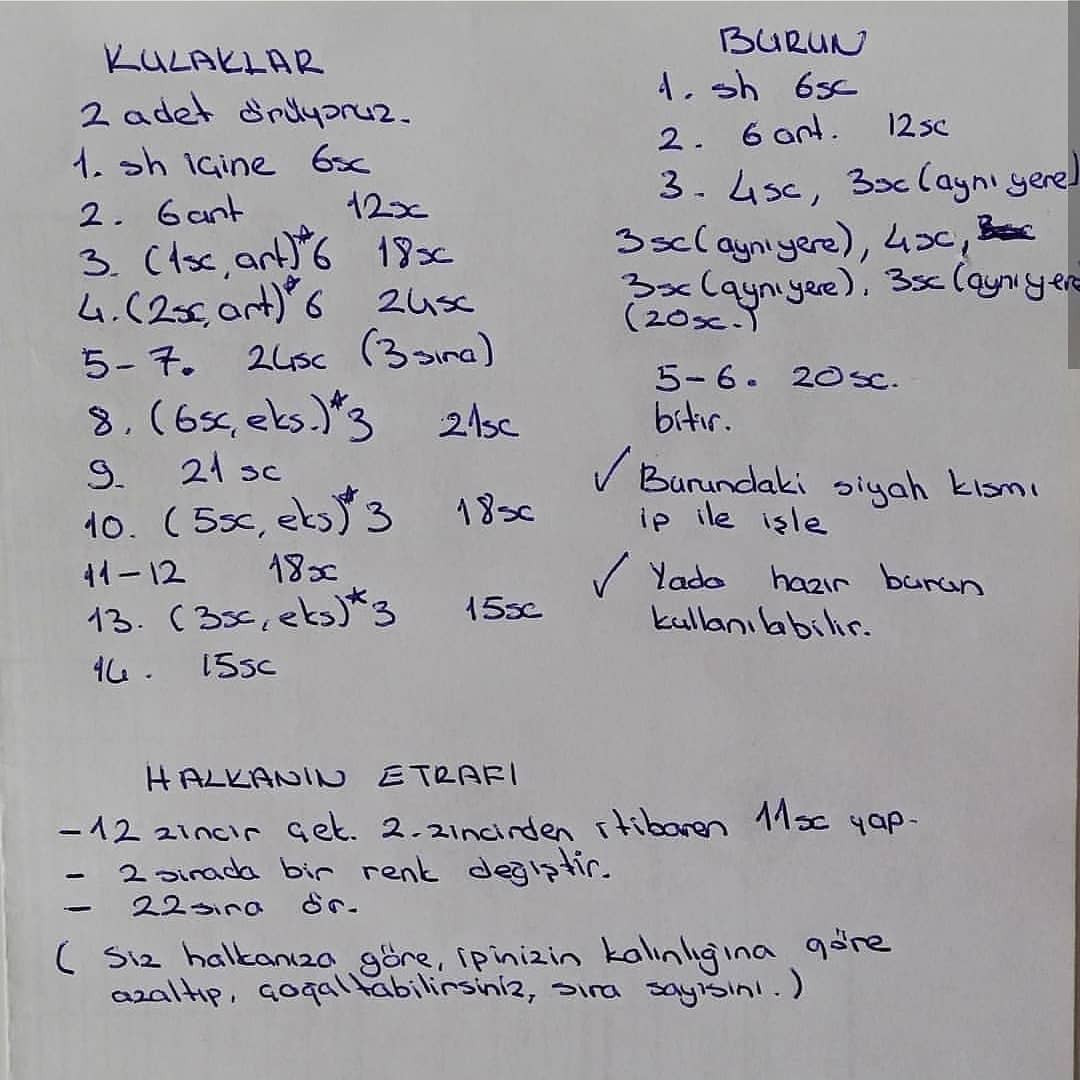 KULAKLAR
2 adet örüyoruz.
1. sh içine 6sc
2. 6 art 12sc
3. (1sc, art)*6 18sc
4. (2sc, art)*6 24sc
5-7. 24sc (3 sıra)
8. (6sc, eks.)*3 21sc
9. 21 sc
10. (5sc, eks)*3 18sc
11-12 18sc
13. (3sc, eks)*3 15sc
14. 15sc
BURUN
1. sh 6sc
2. 6 art. 12sc
3. 4sc, 3sc (aynı yere)
3sc (aynı yere), 4sc,
3sc (aynı yere), 3sc (aynı yere
(20sc.)
5-6. 20sc.
bitir.
✓ Burundaki siyah kısmı
ip ile işle
✓ Yada hazır burun
kullanılabilir.
HALKANIN ETRAFI
- 12 zincir çek. 2. zincirden itibaren 11sc yap.
- 2 sırada bir renk değiştir.
- 22 sıra ör.
( Siz halkanıza göre, ipinizin kalınlığına göre
azaltıp, çoğaltabilirsiniz, sıra sayısını.)